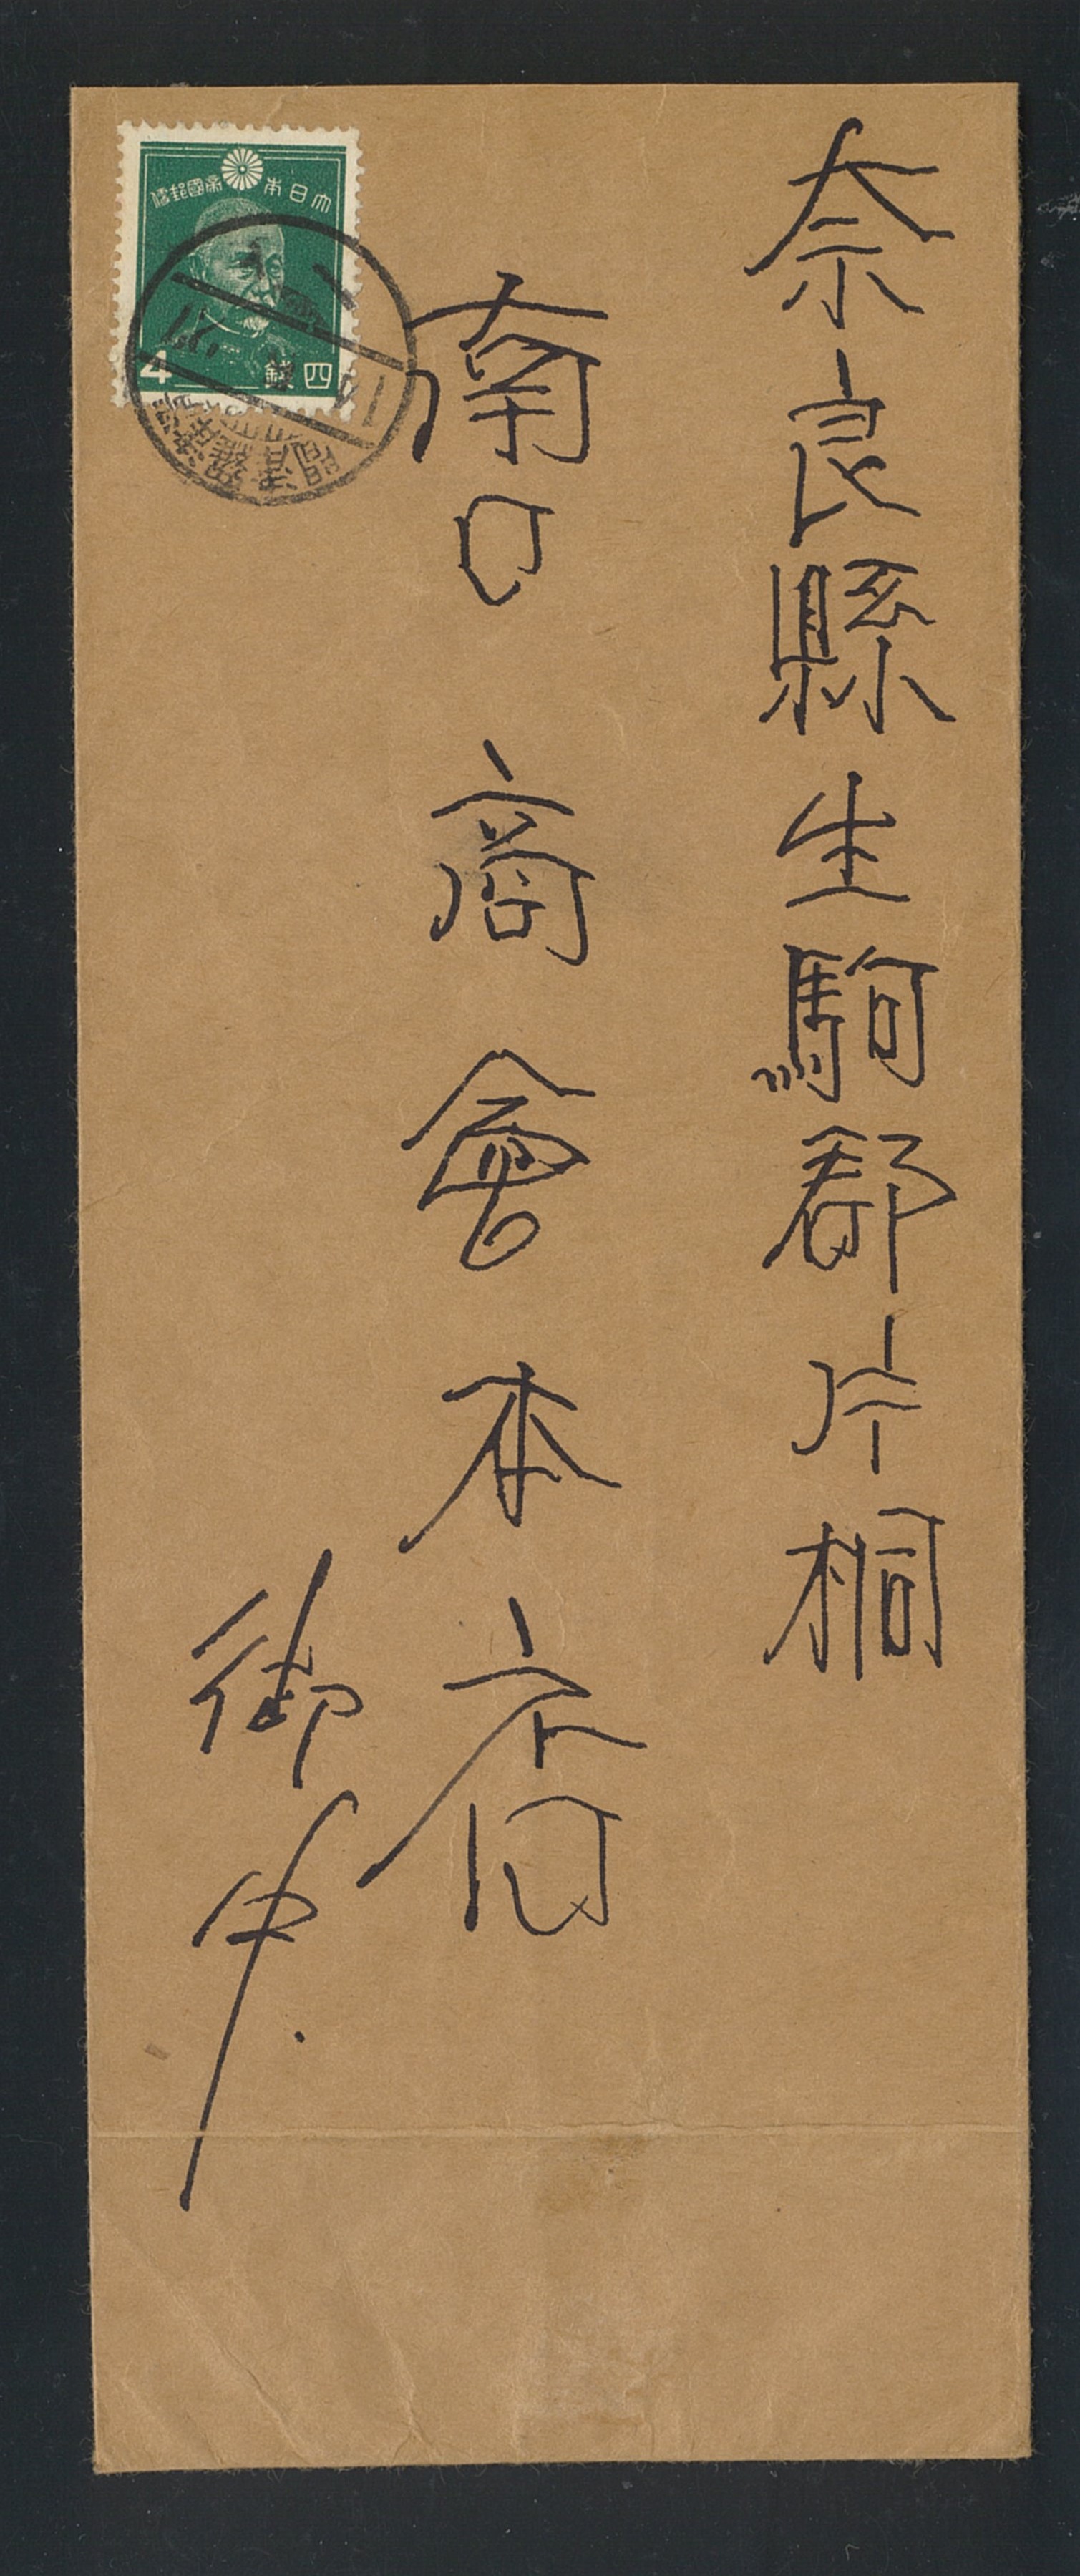 奈良縣生駒郡片桐
南口商會本店
御中
大日本帝國郵便
4 四錢